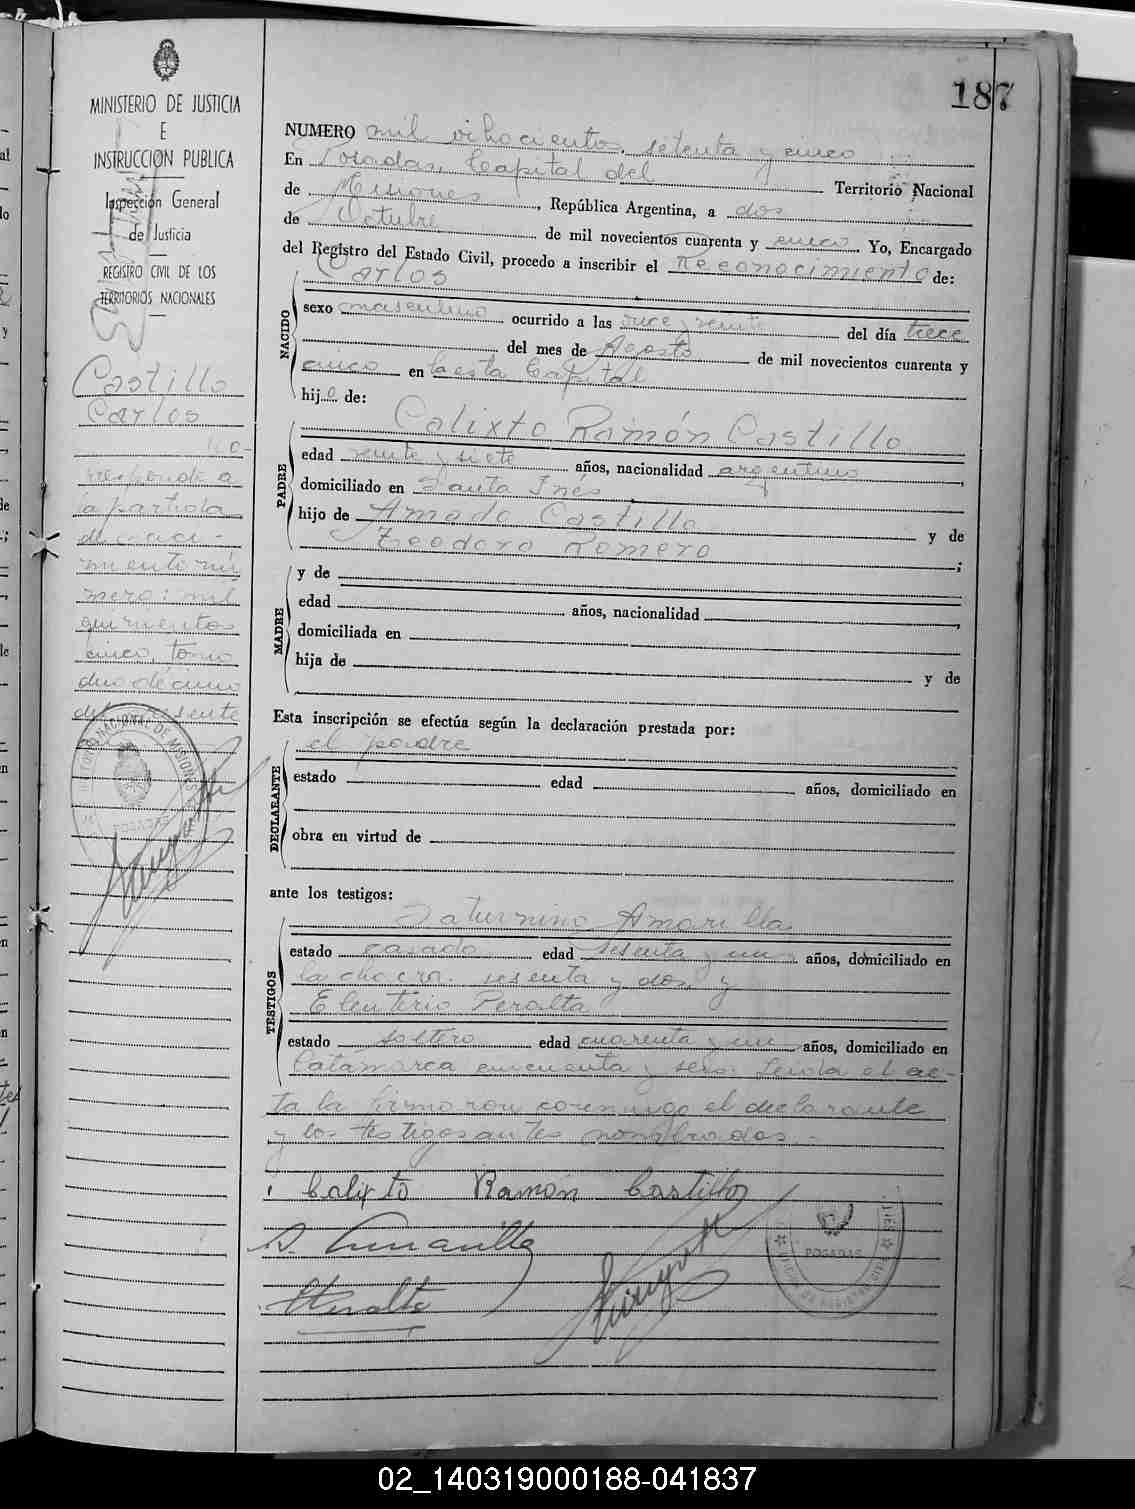 187
MINISTERIO DE JUSTICIA
E
INSTRUCCION PUBLICA
Inspección General
de Justicia
REGISTRO CIVIL DE LOS
TERRITORIOS NACIONALES
Castillo
Carlos
Co-
rresponde a
la partida
de naci-
miento nú
mero: mil
quinientos
cinco, tomo
duodécimo
del presente
NUMERO mil ochocientos setenta y cinco
En Posadas, Capital del Territorio Nacional
de Misiones, República Argentina, a dos
de Octubre de mil novecientos cuarenta y cinco Yo, Encargado
del Registro del Estado Civil, procedo a inscribir el Reconocimiento de:
Carlos
NACIDO
sexo masculino ocurrido a las once y veinte del día trece
del mes de Agosto de mil novecientos cuarenta y
cinco en esta Capital
hijo de:
Calixto Ramón Castillo
PADRE
edad veinte y siete años, nacionalidad argentino,
domiciliado en Santa Inés
hijo de Amado Castillo y de
Teodora Romero;
MADRE
y de
edad años, nacionalidad,
domiciliada en
hija de y de
Esta inscripción se efectúa según la declaración prestada por:
el padre
DECLARANTE
estado edad años, domiciliado en
obra en virtud de
ante los testigos:
Saturnino Amarilla
TESTIGOS
estado casado edad sesenta y un años, domiciliado en
la chacra sesenta y dos, y
Eleuterio Peralta
estado soltero edad cuarenta y un años, domiciliado en
Catamarca cincuenta y seis. Leída el ac-
ta la firmaron conmigo el declarante
y los testigos antes nombrados.-
Calixto Ramón Castillo
S. Amarilla
EPeralta
POSADAS
02_140319000188-041837